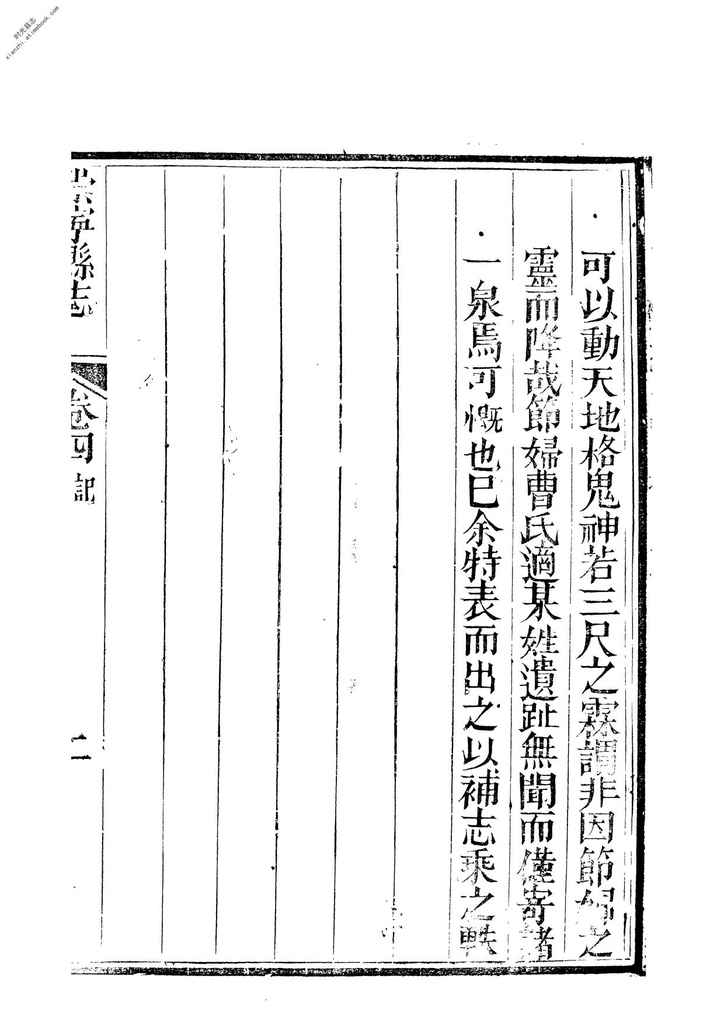 可以動天地格鬼神若三尺之霖謂非因節婦之
靈而降哉節婦曹氏適某姓遺趾無聞而僅寄諸
一泉焉可慨也巳余特表而出之以補志乘之軼
崇寧縣志
卷四 記
二
时光县志
xianzhi.atimebook.com